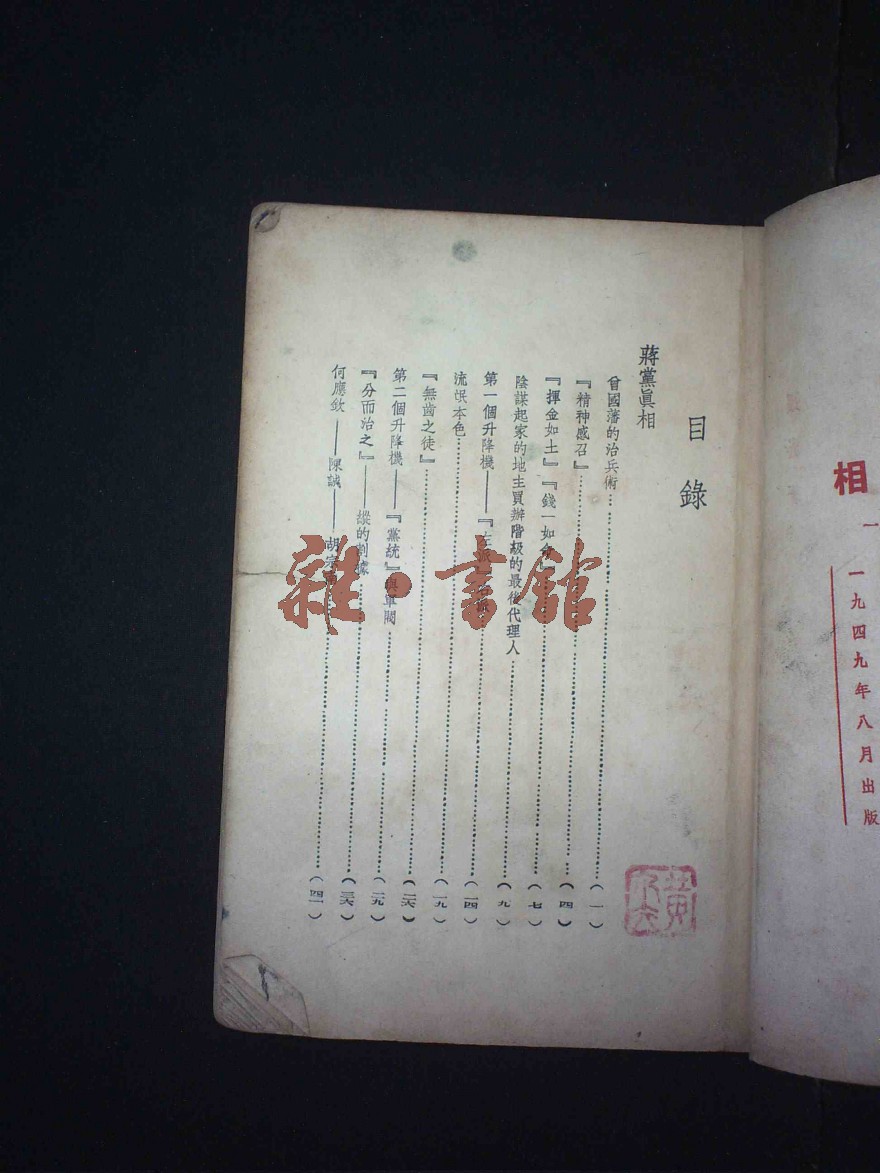 相
一
一九四九年八月出版
目錄
蔣黨眞相
曾國藩的治兵術……(一)
『精神感召』……(四)
『揮金如土』『錢一如命』……(七)
陰謀起家的地主買辦階級的最後代理人……(九)
第一個升降機——『左派』……(一四)
流氓本色……(一九)
『無齒之徒』……(二六)
第二個升降機——『黨統』與軍閥……(二九)
『分而治之』——縱的割據……(三六)
何應欽——陳誠——胡宗南……(四一)
雜·書館
黃